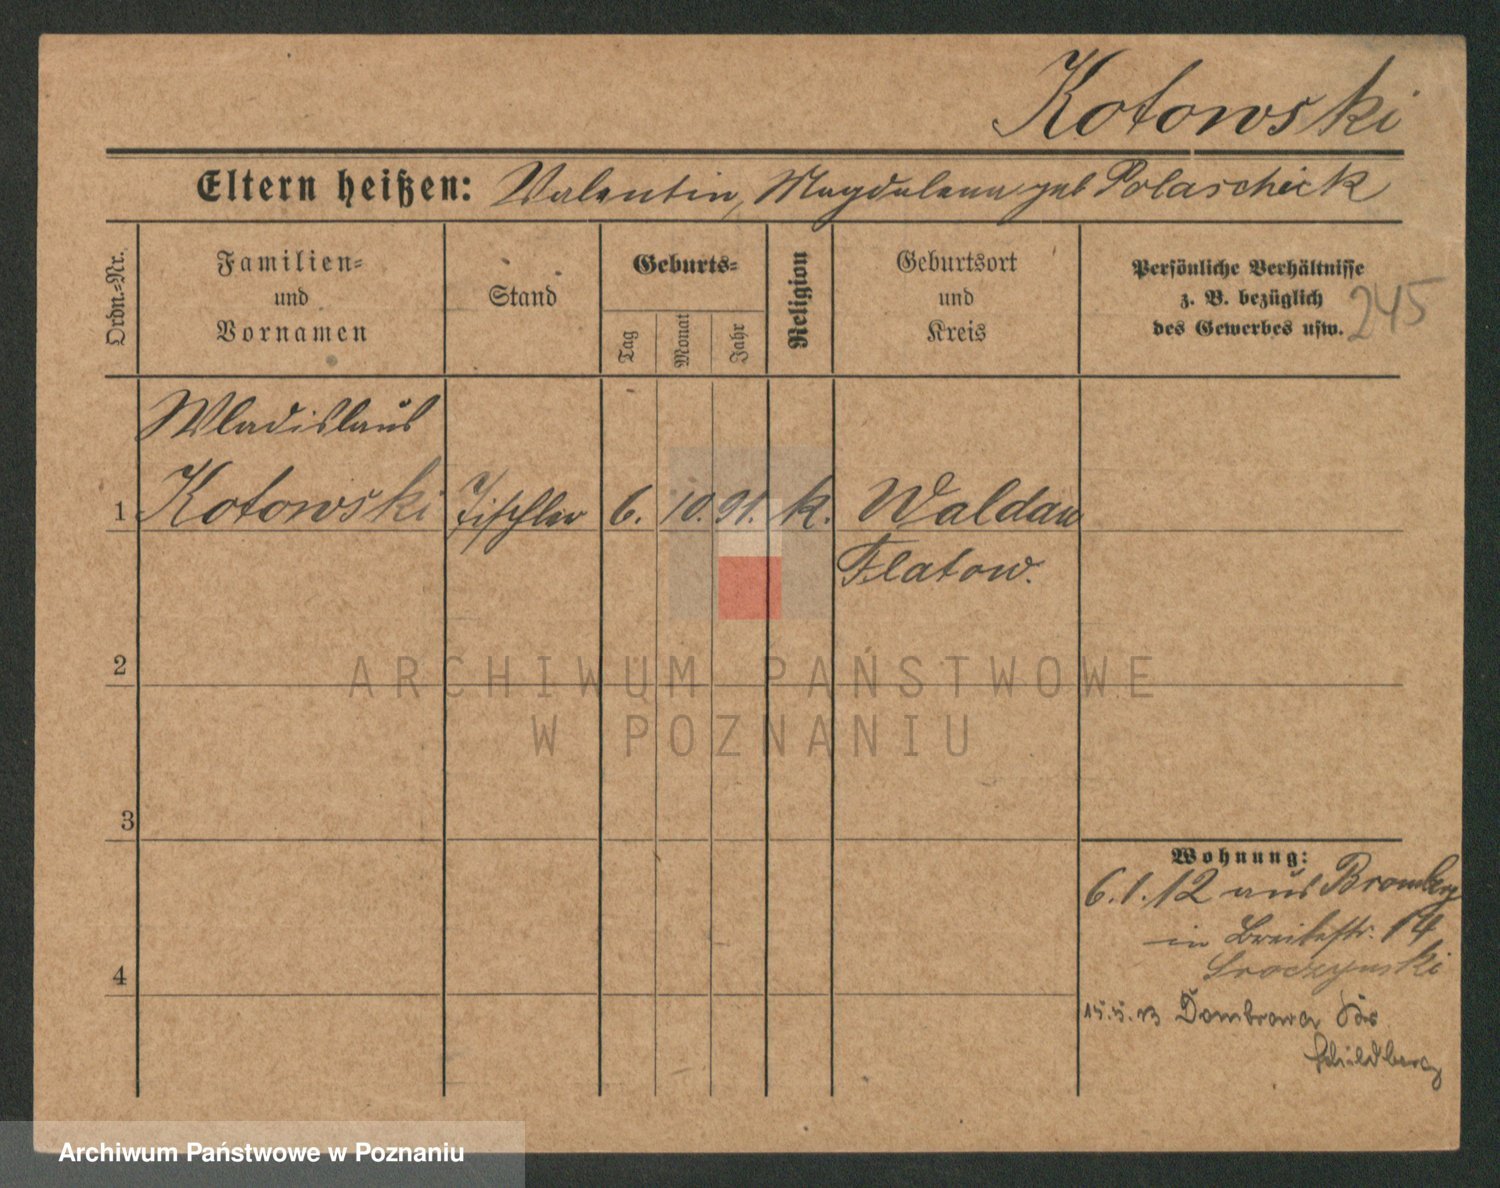 Kotowski
Eltern heißen: Valentin, Magdalena geb Polascheck
Ordn.-Nr.
Familien- und Vornamen
Stand
Geburts-
Tag
Monat
Jahr
Religion
Geburtsort und Kreis
Persönliche Verhältnisse
z. B. bezüglich
des Gewerbes usw.
245
Wladislaus
1 Kotowski Tischler 6. 10. 91. k. Waldau
Flatow.
2
ARCHIWUM PAŃSTWOWE
W POZNANIU
3
Wohnung:
6.1.12 aus Bromberg
in Breitestr. 14
4
15.5.13 Dombrowa
Schildberg
Archiwum Państwowe w Poznaniu